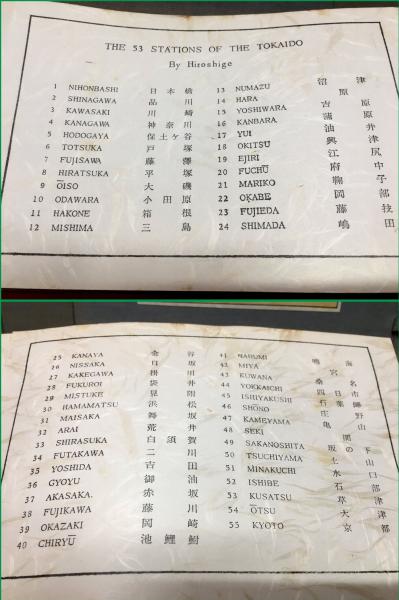 THE 53 STATIONS OF THE TOKAIDO
By Hiroshige
1 NIHONBASHI 日本橋
2 SHINAGAWA 品川
3 KAWASAKI 川崎
4 KANAGAWA 神奈川
5 HODOGAYA 保土ヶ谷
6 TOTSUKA 戸塚
7 FUJISAWA 藤澤
8 HIRATSUKA 平塚
9 ŌISO 大磯
10 ODAWARA 小田原
11 HAKONE 箱根
12 MISHIMA 三島
13 NUMAZU 沼津
14 HARA 原
15 YOSHIWARA 吉原
16 KANBARA 蒲原
17 YUI 油井
18 OKITSU 興津
19 EJIRI 江尻
20 FUCHŪ 府中
21 MARIKO 鞠子
22 OKABE 岡部
23 FUJIEDA 藤枝
24 SHIMADA 嶋田
25 KANAYA 金谷
26 NISSAKA 日坂
27 KAKEGAWA 掛川
28 FUKUROI 袋井
29 MISTUKE 見附
30 HAMAMATSU 浜松
31 MAISAKA 舞坂
32 ARAI 荒井
33 SHIRASUKA 白須賀
34 FUTAKAWA 二川
35 YOSHIDA 吉田
36 GYOYU 御油
37 AKASAKA. 赤坂
38 FUJIKAWA 藤川
39 OKAZAKI 岡崎
40 CHIRYŪ 池鯉鮒
41 NARUMI 鳴海
42 MIYA 宮
43 KUWANA 桑名
44 YOKKAICHI 四日市
45 ISHIYAKUSHI 石薬師
46 SHONO 庄野
47 KAMEYAMA 亀山
48 SEKI 関
49 SAKANOSHITA 坂の下
50 TSUCHIYAMA 土山
51 MINAKUCHI 水口
52 ISHIBE 石部
53 KUSATSU 草津
54 ŌTSU 大津
55 KYOTO 京都